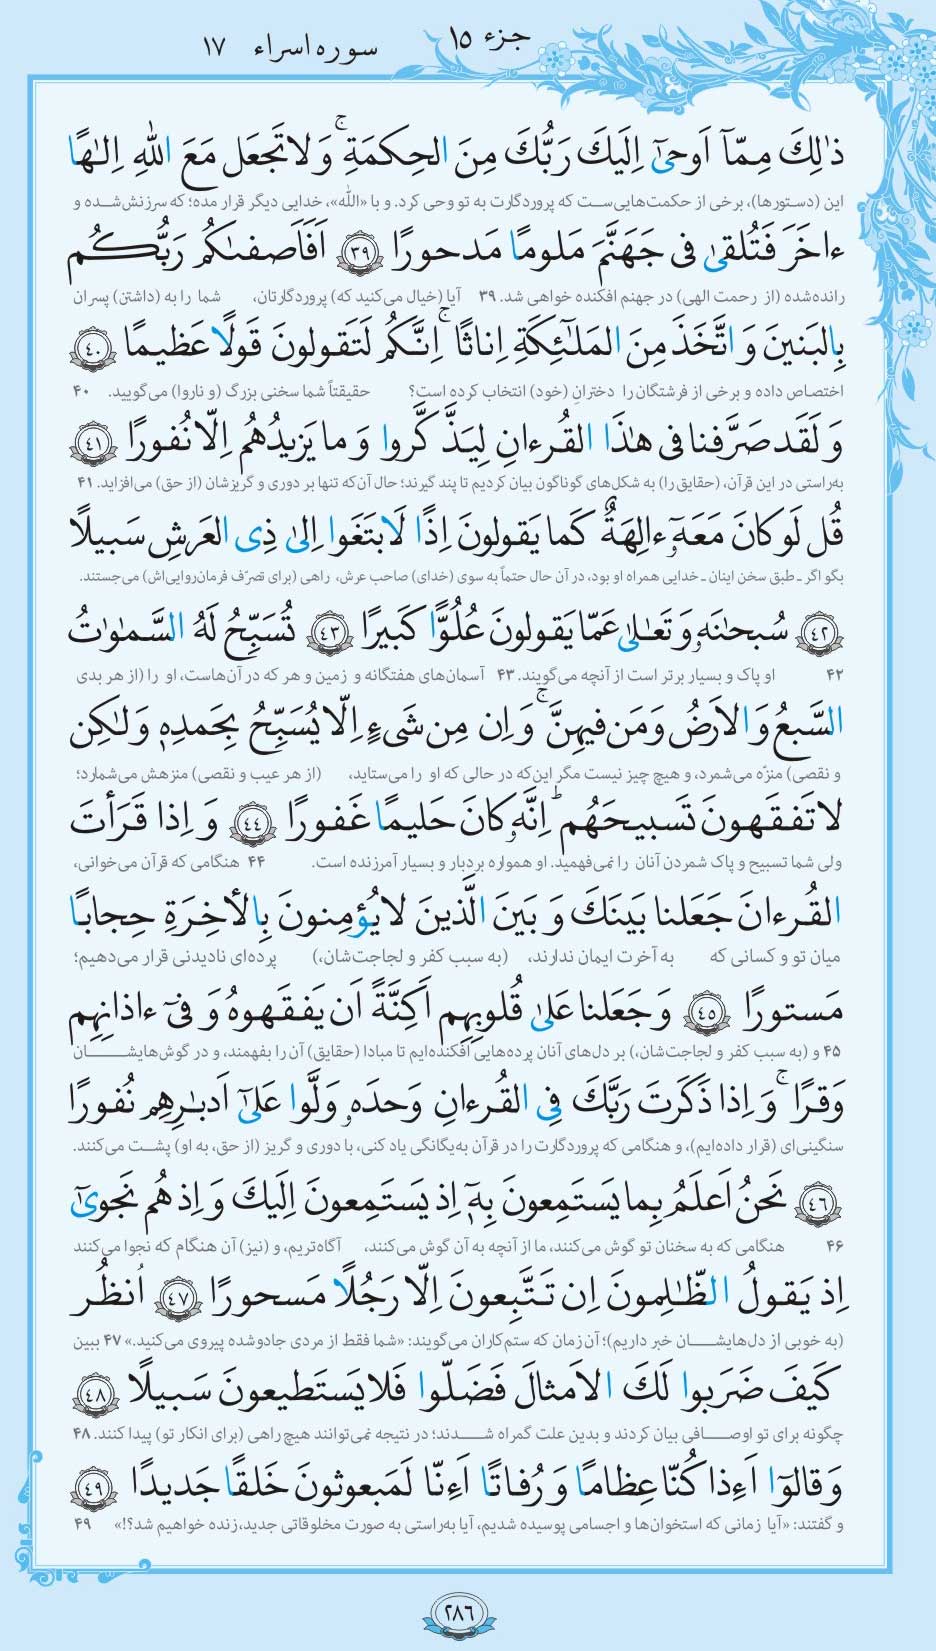 جزء ۱۵
سوره اسراء ۱۷
ذٰلِكَ مِمّآ اَوحىٰٓ اِلَيكَ رَبُّكَ مِنَ الحِكمَةِ ۚ وَ لاتَجعَل مَعَ اللّٰهِ اِلٰهًا
این (دستورها)، برخی از حکمت‌هایی‌ست که پروردگارت به تو وحی کرد. و با «الله»، خدایی دیگر قرار مده؛ که سرزنش‌شده و
ءاخَرَ فَتُلقىٰ فى جَهَنَّمَ مَلومًا مَدحورًا ﴿۳۹﴾ اَفَاَصفىٰكُم رَبُّكُم
رانده‌شده (از رحمت الهی) در جهنم افکنده خواهی شد. ۳۹ آیا (خیال می‌کنید که) پروردگارتان، شما را به (داشتن) پسران
بِالبَنينَ وَ اتَّخَذَ مِنَ المَلٰٓئِكَةِ اِناثًا ۚ اِنَّكُم لَتَقولونَ قَولًا عَظيمًا ﴿۴۰﴾
اختصاص داده و برخی از فرشتگان را دخترانِ (خود) انتخاب کرده است؟ حقیقتاً شما سخنی بزرگ (و ناروا) می‌گویید. ۴۰
وَ لَقَد صَرَّفنا فى هٰذَا القُرءانِ لِيَذَّكَّروا وَ ما يَزيدُهُم اِلّا نُفورًا ﴿۴۱﴾
به‌راستی در این قرآن، (حقایق را) به شکل‌های گوناگون بیان کردیم تا پند گیرند؛ حال آن‌که تنها بر دوری و گریزشان (از حق) می‌افزاید. ۴۱
قُل لَو كانَ مَعَهٗٓ ءالِهَةٌ كَما يَقولونَ اِذًا لَابتَغَوا اِلىٰ ذِى العَرشِ سَبيلًا
بگو اگر ـ طبق سخن اینان ـ خدایی همراه او بود، در آن حال حتماً به سوی (خدای) صاحب عرش، راهی (برای تصرّف فرمان‌روایی‌اش) می‌جستند.
﴿۴۲﴾ سُبحانَهٗ وَ تَعالىٰ عَمّا يَقولونَ عُلُوًّا كَبيرًا ﴿۴۳﴾ تُسَبِّحُ لَهُ السَّمٰوٰتُ
۴۲ او پاک و بسیار برتر است از آنچه می‌گویند. ۴۳ آسمان‌های هفتگانه و زمین و هر که در آن‌هاست، او را (از هر بدی
السَّبعُ وَ الاَرضُ وَ مَن فيهِنَّ ۚ وَ اِن مِن شَىءٍ اِلّا يُسَبِّحُ بِحَمدِهٖ وَ لٰكِن
و نقصی) منزّه می‌شمرد، و هیچ چیز نیست مگر این‌که در حالی که او را می‌ستاید، (از هر عیب و نقصی) منزهش می‌شمارد؛
لاتَفقَهونَ تَسبيحَهُم ۗ اِنَّهٗ كانَ حَليمًا غَفورًا ﴿۴۴﴾ وَ اِذا قَرَأتَ
ولی شما تسبیح و پاک شمردن آنان را نمی‌فهمید. او همواره بردبار و بسیار آمرزنده است. ۴۴ هنگامی که قرآن می‌خوانی،
القُرءانَ جَعَلنا بَينَكَ وَ بَينَ الَّذينَ لايُؤمِنونَ بِالأخِرَةِ حِجابًا
میان تو و کسانی که به آخرت ایمان ندارند، (به سبب کفر و لجاجت‌شان،) پرده‌ای نادیدنی قرار می‌دهیم؛
مَستورًا ﴿۴۵﴾ وَ جَعَلنا عَلىٰ قُلوبِهِم اَكِنَّةً اَن يَفقَهوهُ وَ فىٓ ءاذانِهِم
۴۵ و (به سبب کفر و لجاجت‌شان،) بر دل‌های آنان پرده‌هایی افکنده‌ایم تا مبادا (حقایق) آن را بفهمند، و در گوش‌هایشان
وَقرًا ۚ وَ اِذا ذَكَرتَ رَبَّكَ فِى القُرءانِ وَحدَهٗ وَلَّوا عَلىٰٓ اَدبٰرِهِم نُفورًا
سنگینی‌ای (قرار داده‌ایم)، و هنگامی که پروردگارت را در قرآن به‌یگانگی یاد کنی، با دوری و گریز (از حق، به او) پشت می‌کنند.
﴿۴۶﴾ نَحنُ اَعلَمُ بِما يَستَمِعونَ بِهٖٓ اِذ يَستَمِعونَ اِلَيكَ وَ اِذ هُم نَجوىٰٓ
۴۶ هنگامی که به سخنان تو گوش می‌کنند، ما از آنچه به آن گوش می‌کنند، آگاه‌تریم، و (نیز) آن هنگام که نجوا می‌کنند
اِذ يَقولُ الظّٰلِمونَ اِن تَتَّبِعونَ اِلّا رَجُلًا مَسحورًا ﴿۴۷﴾ اُنظُر
(به خوبی از دل‌هایشان خبر داریم)؛ آن زمان که ستم‌کاران می‌گویند: «شما فقط از مردی جادوشده پیروی می‌کنید.» ۴۷ ببین
كَيفَ ضَرَبوا لَكَ الاَمثالَ فَضَلّوا فَلايَستَطيعونَ سَبيلًا ﴿۴۸﴾
چگونه برای تو اوصافی بیان کردند و بدین علت گمراه شدند؛ در نتیجه نمی‌توانند هیچ راهی (برای انکار تو) پیدا کنند. ۴۸
وَ قالوٓا اَءِذا كُنّا عِظامًا وَ رُفاتًا اَءِنّا لَمَبعوثونَ خَلقًا جَديدًا ﴿۴۹﴾
و گفتند: «آیا زمانی که استخوان‌ها و اجسامی پوسیده شدیم، آیا به‌راستی به صورت مخلوقاتی جدید، زنده خواهیم شد؟!» ۴۹
۲۸۶